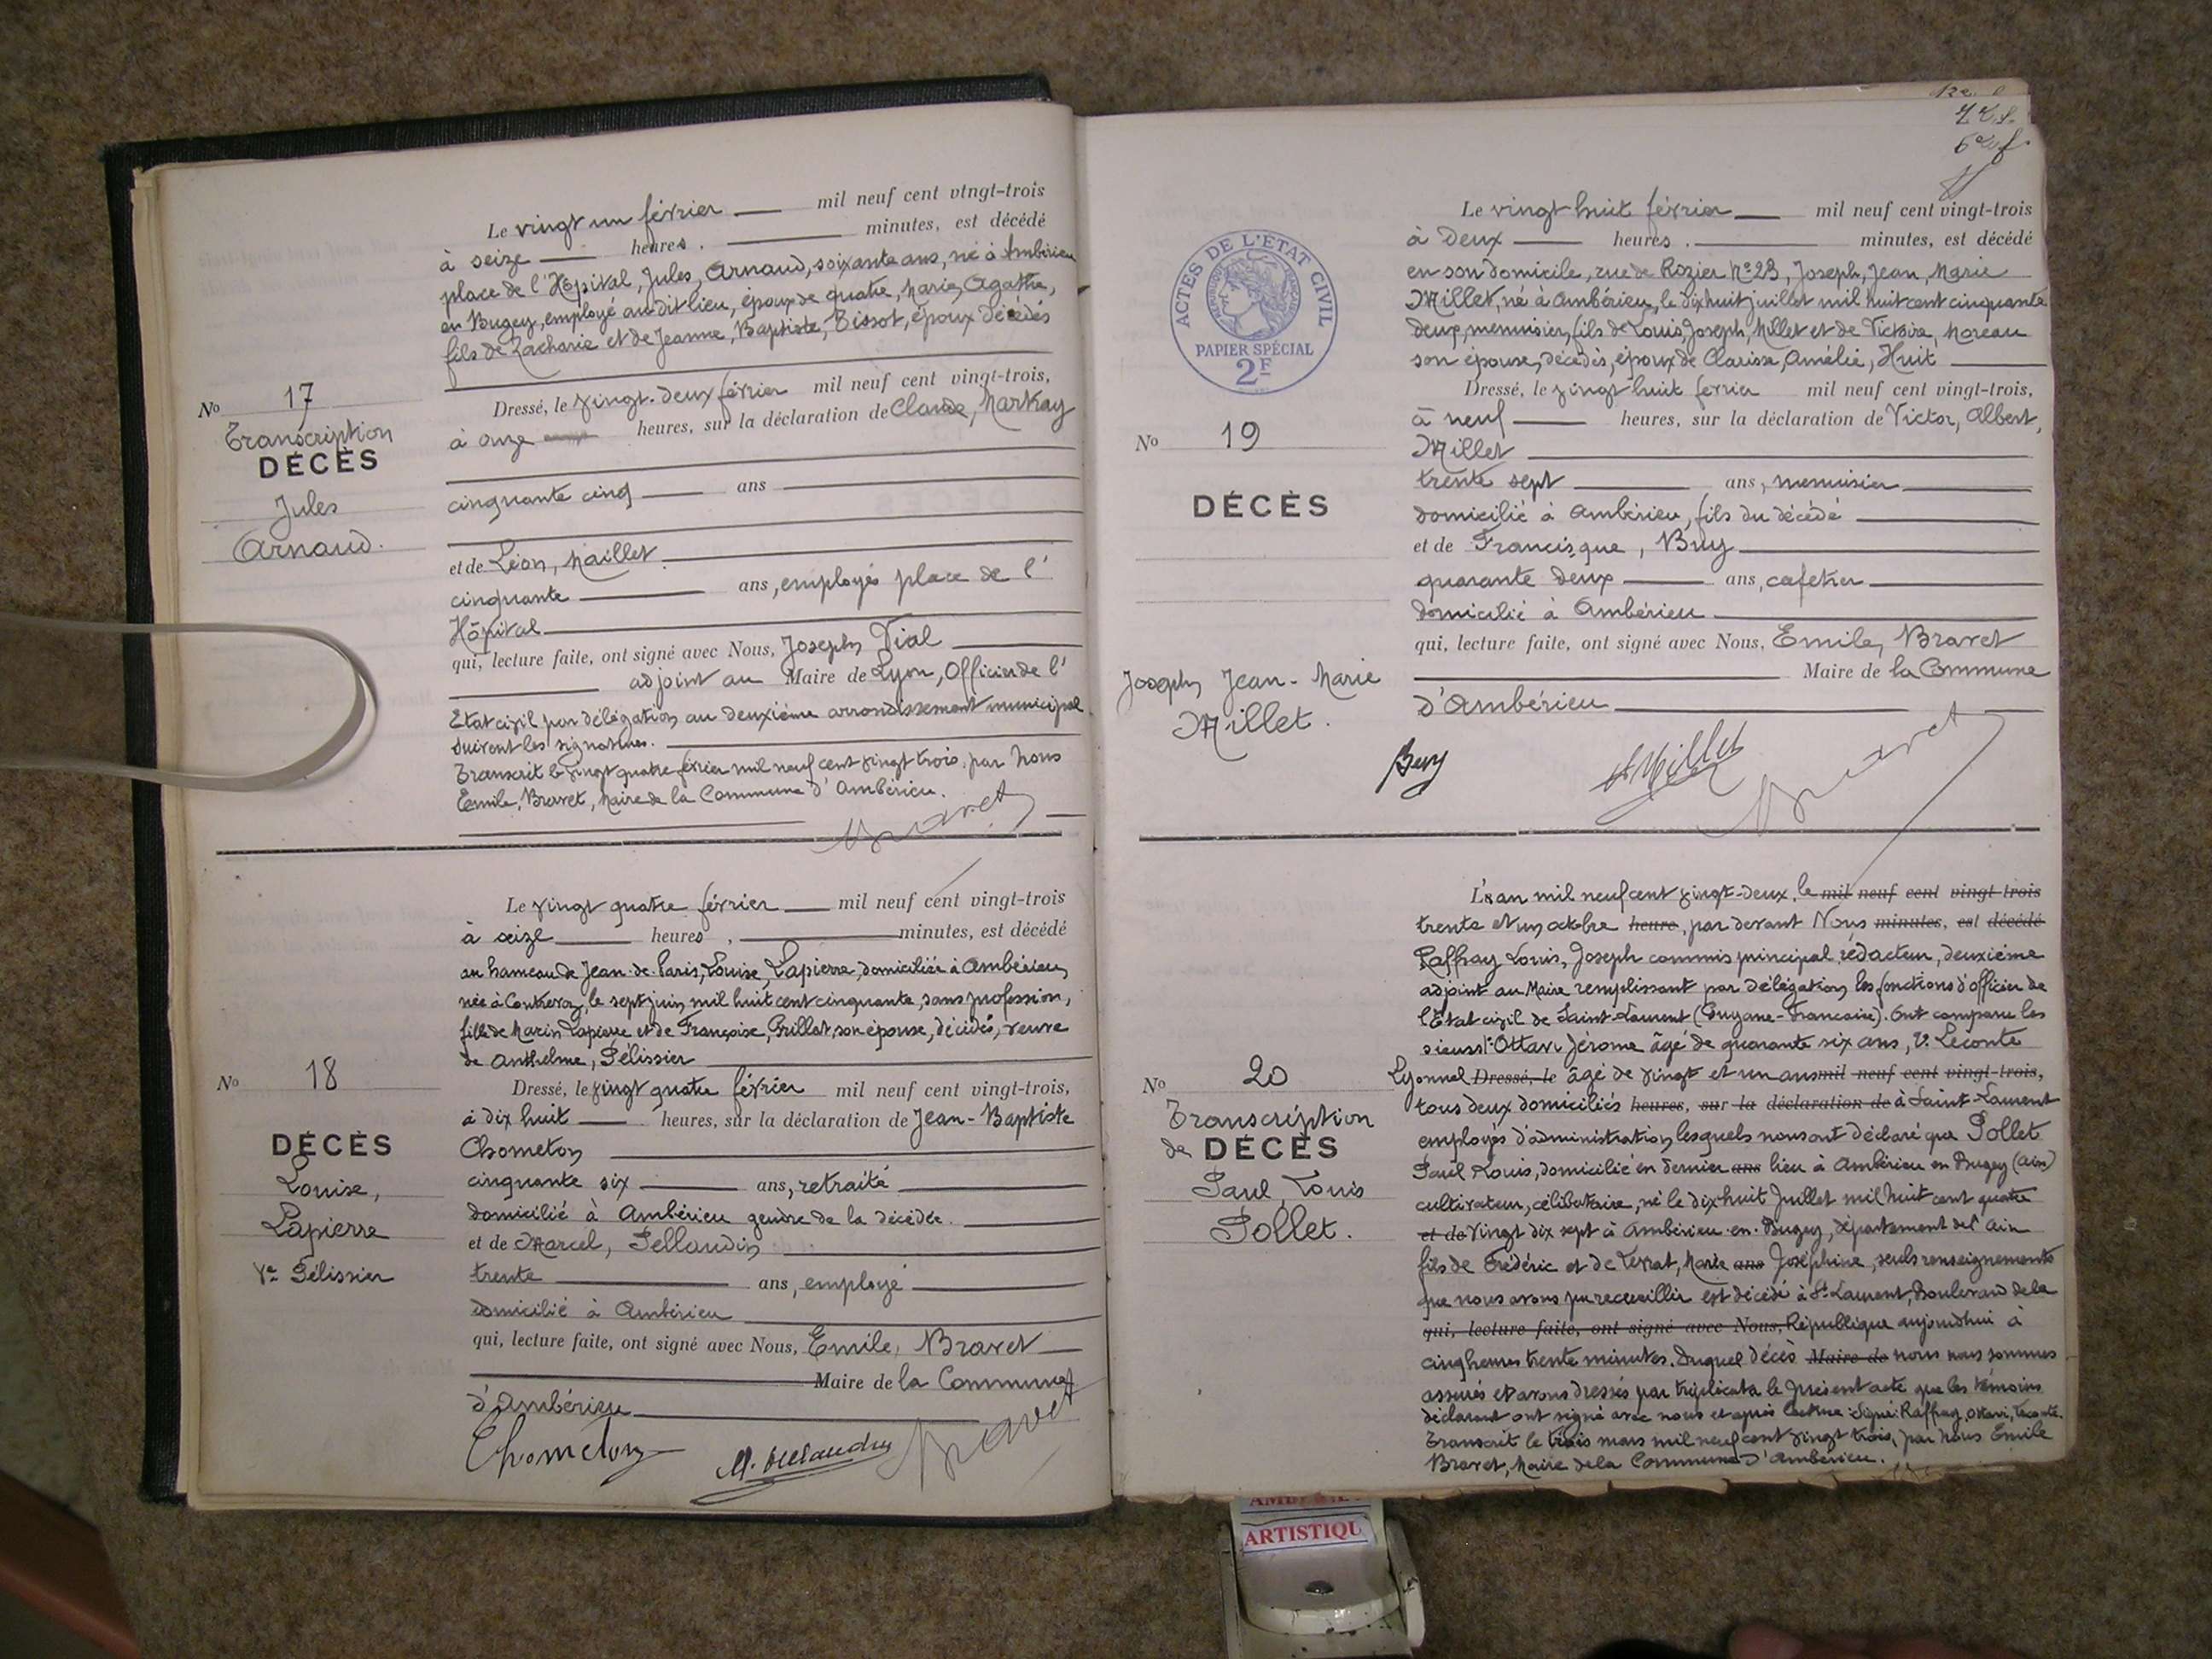 Le vingt un février mil neuf cent vingt-trois
à seize heures, minutes, est décédé
place de l'Hôpital, Jules, Arnaud, soixante ans, né à Ambérieu
en Bugey, employé audit lieu, époux de quatre, Marie, Agathe,
fils de Zacharie et de Jeanne, Baptiste, Tissot, époux décédés
Dressé, le vingt-deux février mil neuf cent vingt-trois,
à onze heures, sur la déclaration de Claude,
cinquante cinq ans
et de Léon, Maillet
cinquante ans, employés place de l'
Hôpital
qui, lecture faite, ont signé avec Nous, Joseph Vial
adjoint au Maire de Lyon, Officier de l'
Etat civil par délégation au deuxième arrondissement municipal
suivent les signatures.
Transcrit le vingt quatre février mil neuf cent vingt trois, par Nous
Emile, Bravet, Maire de la Commune d'Ambérieu.
Bravet
No 17
Transcription
DÉCÈS
Jules
Arnaud.
Le vingt quatre février mil neuf cent vingt-trois
à seize heures, minutes, est décédé
au hameau de Jean-de-Paris, Louise, Lapierre, domiciliée à Ambérieu,
née à le sept juin mil huit cent cinquante, sans profession,
fille de Marin Lapierre et de Françoise, Grillat, son épouse, décédés, veuve
de Anthelme, Pélissier
Dressé, le vingt quatre février mil neuf cent vingt-trois,
à dix huit heures, sur la déclaration de Jean-Baptiste
Chometon
cinquante six ans, retraité
domicilié à Ambérieu gendre de la décédée.
et de Marcel, Pellaudin
trente ans, employé
domicilié à Ambérieu
qui, lecture faite, ont signé avec Nous, Emile, Bravet
Maire de la Commune
d'Ambérieu
Chometon M. Pellaudin Bravet
No 18
DÉCÈS
Louise,
Lapierre
Ve Pélissier
7e f.
6e f
ACTES DE L'ETAT CIVIL
PAPIER SPÉCIAL
2F
Le vingt huit février mil neuf cent vingt-trois
à deux heures, minutes, est décédé
en son domicile, rue de Rozier No 23, Joseph, Jean, Marie
Millet, né à Ambérieu, le dix huit juillet mil huit cent cinquante
deux, menuisier, fils de Louis, Joseph, Millet et de Victoire, Moreau
son épouse, décédés, époux de Clarisse, Amélie, Huit
Dressé, le vingt huit février mil neuf cent vingt-trois,
à neuf heures, sur la déclaration de Victor, Albert,
Millet
trente sept ans, menuisier
domicilié à Ambérieu, fils du décédé
et de Francisque, Buy
quarante deux ans, cafetier
domicilié à Ambérieu
qui, lecture faite, ont signé avec Nous, Emile, Bravet
Maire de la Commune
d'Ambérieu
Buy A Millet Bravet
No 19
DÉCÈS
Joseph, Jean-Marie
Millet.
L'an mil neuf cent vingt-deux, le mil neuf cent vingt-trois
trente et un octobre heure, par devant Nous minutes, est décédé
Raffray Louis, Joseph commis principal rédacteur, deuxième
adjoint au Maire remplissant par délégation les fonctions d'officier de
l'Etat civil de Saint-Laurent (Guyane-Française). Ont comparu les
sieurs 1° Ottavi Jérome âgé de quarante six ans, 2. Leconte
Lyonnel Dressé, le âgé de vingt et un ans mil neuf cent vingt-trois,
tous deux domiciliés heures, sur la déclaration de à Saint-Laurent
employés d'administration, lesquels nous ont déclaré que Pollet
Paul Louis, domicilié en dernier ans lieu à Ambérieu en Bugey (Ain)
cultivateur, célibataire, né le dix huit Juillet mil huit cent quatre
et de vingt dix sept à Ambérieu-en-Bugey, département de l'Ain
fils de Frédéric et de Terrat, Marie ans Joséphine, seuls renseignements
que nous avons pu recueillir est décédé à St Laurent, Boulevard de la
qui, lecture faite, ont signé avec Nous, République aujourdhui à
cinq heures trente minutes. Duquel décès Maire de nous nous sommes
assurés et avons dressés par triplicata le présent acte que les témoins
déclarant ont signé avec nous et après lecture. Signé: Raffray, Ottavi, Leconte.
Transcrit le trois mars mil neuf cent vingt trois, par Nous Emile
Bravet, Maire de la Commune d'Ambérieu.
No 20
Transcription
de DÉCÈS
Paul, Louis
Pollet.
ARTISTIQU